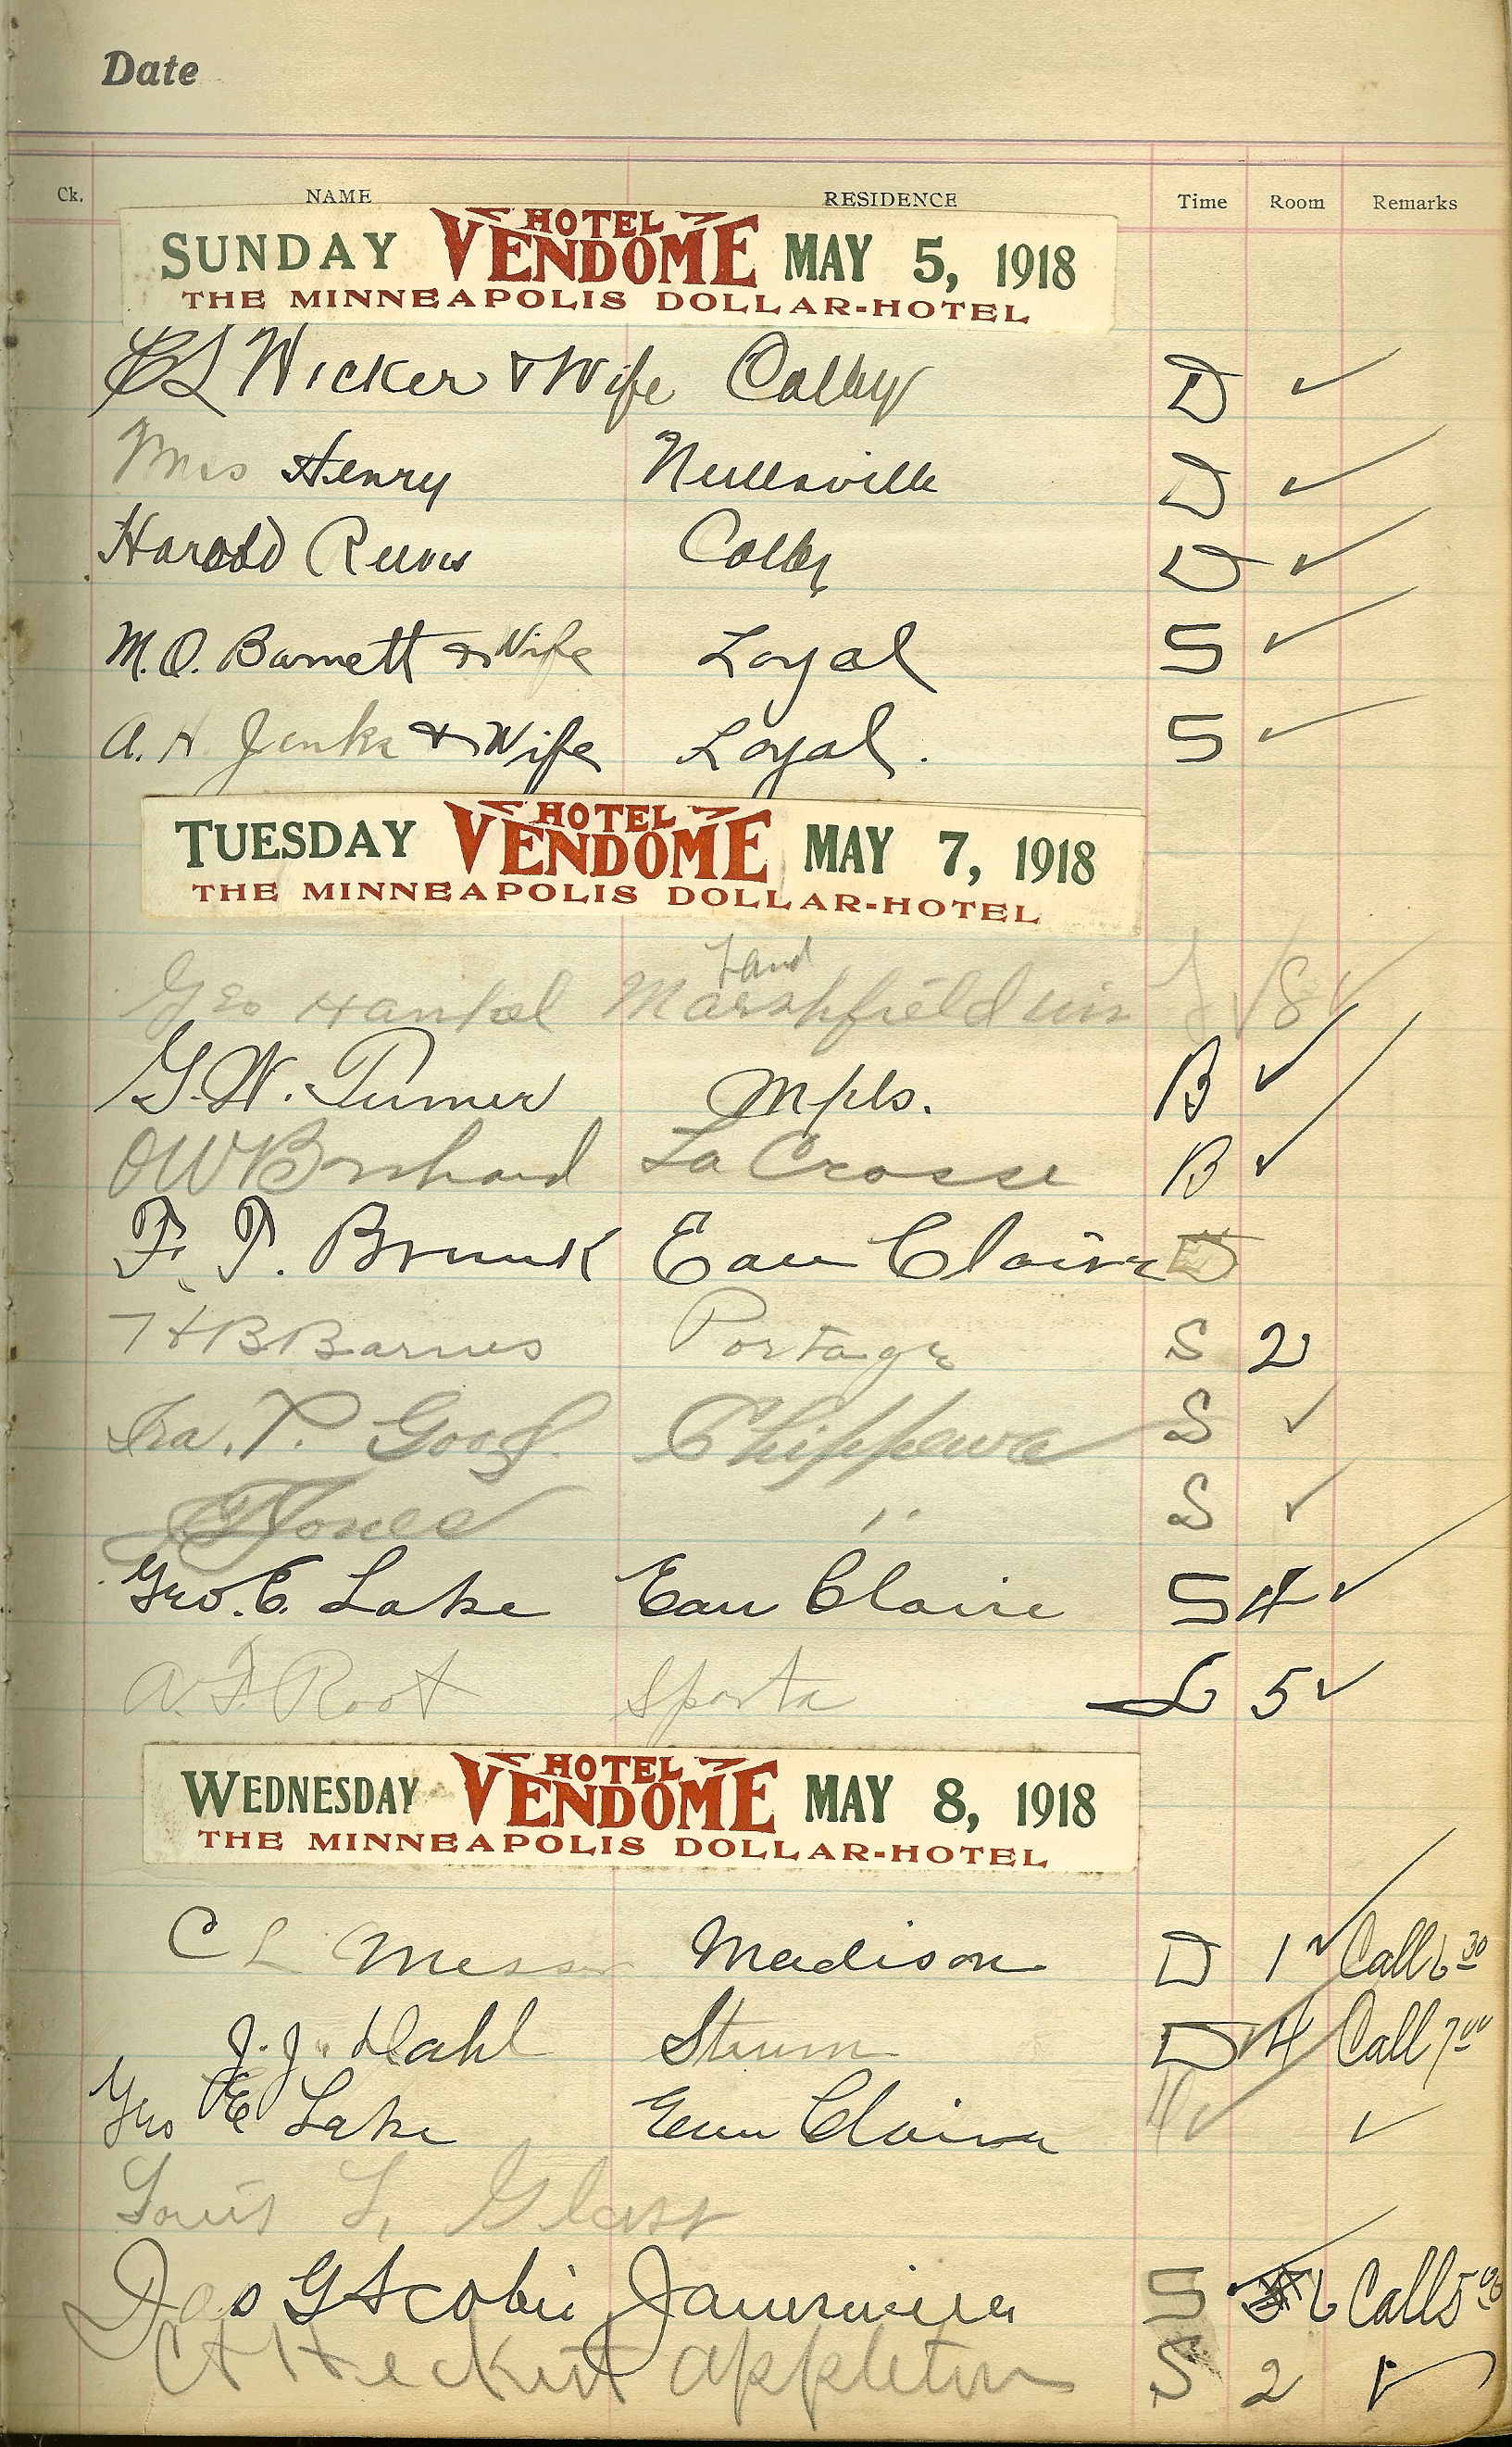 Date
Ck. NAME RESIDENCE Time Room Remarks
SUNDAY HOTEL VENDOME MAY 5, 1918
THE MINNEAPOLIS DOLLAR-HOTEL
CL Wicker & Wife Colby D ✓
Mrs Henry Neillsville D ✓
Harold Reeves Colby D ✓
M.O. Barnett & Wife Loyal S ✓
A. H Jenks & Wife Loyal. S ✓
TUESDAY HOTEL VENDOME MAY 7, 1918
THE MINNEAPOLIS DOLLAR-HOTEL
Geo Hankel Marshfield wis ✓
G.W. Turner Mpls. B ✓
OW La Crosse B ✓
F. T. Brunk Eau Claire D
HB Barnes Portage S 2
Ira. P. Good. Chippewa S ✓
Jones " S ✓
Geo. E. Lake Eau Claire S 4 ✓
A. F. Root Sparta L 5 ✓
WEDNESDAY HOTEL VENDOME MAY 8, 1918
THE MINNEAPOLIS DOLLAR-HOTEL
C L Messer Madison D 1 ✓ Call 6 30
J. J. Dahl Strum D 4 Call 7 00
Geo E Lake Eau Claire ✓ ✓
Louis L. Glass
Jas G Scobie Janesville S 6 Call 5 00
C H Heckert Appleton S 2